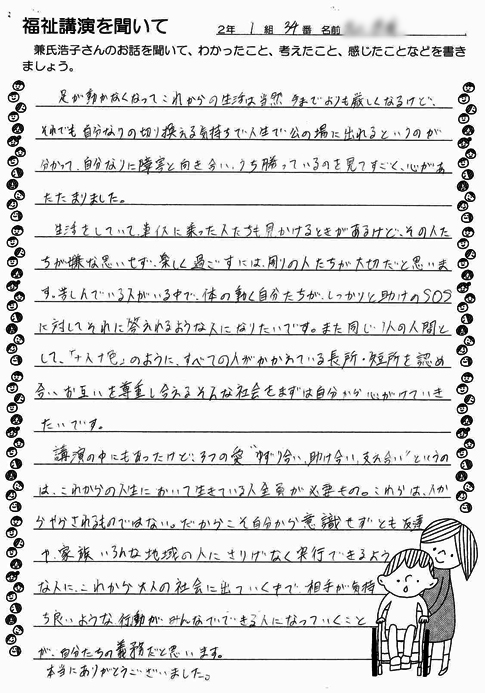 福祉講演を聞いて 2年 1組 34番 名前
兼氏浩子さんのお話を聞いて、わかったこと、考えたこと、感じたことなどを書き
ましょう。
足が動かなくなってこれからの生活は当然 今までよりも厳しくなるけど、
それでも自分なりの切り換える気持ちで人生で公の場に出れるというのが
分かって、自分なりに障害と向き合い、うち勝っているのを見てすごく、心があ
たたまりました。
生活をしていて、車イスに乗った人たちを見かけるときがあるけど、その人た
ちが嫌な思いせず、楽しく過ごすには、周りの人たちが大切だと思いま
す。苦しんでいる人がいる中で、体の動く自分たちが、しっかりと助けのSOS
に対してそれに答えれるような人になりたいです。また同じ1人の人間と
して、「十人十色」のように、すべての人がかかれている長所・短所を認め
合い お互いを尊重し合えるそんな社会をまずは自分から心がけていき
たいです。
講演の中にもあったけど、3つの愛 "ゆずり合い、助け合い、支え合い" というの
は、これからの人生において生きている人全員が必要なもの。これらは、人か
らやかされるものではない。だからこそ自分から意識せずとも友達
や、家族 いろんな地域の人に さりげなく実行できるよう
な人に、これから大人の社会に出ていく中で、相手が気持
ち良いような行動が みんなでできる人になっていくこと
が、自分たちの義務だと思います。
本当にありがとうございました。